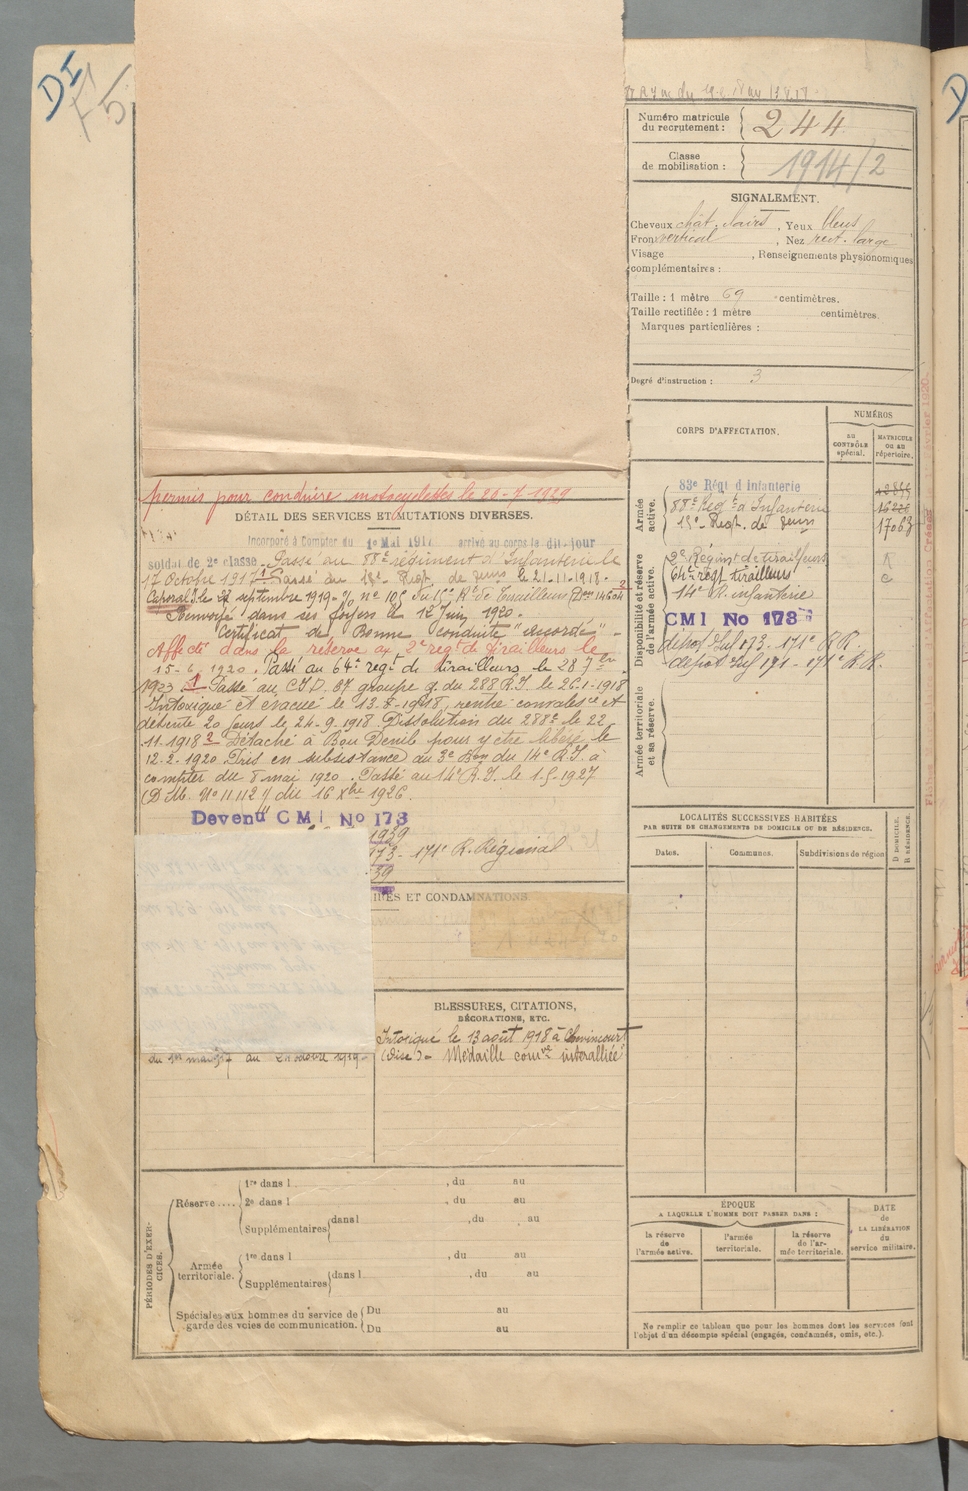 DI
F
5
Numéro matricule
du recrutement :
244
Classe
de mobilisation :
1914/2
SIGNALEMENT.
Cheveux chât. clairs, Yeux bleus
Front vertical, Nez rect. large
Visage , Renseignements physionomiques
complémentaires :
Taille : 1 mètre 69 centimètres.
Taille rectifiée : 1 mètre centimètres.
Marques particulières :
Degré d'instruction : 3
CORPS D'AFFECTATION.
NUMÉROS
AU
CONTRÔLE
spécial.
MATRICULE
OU AU
répertoire.
Armée
active.
83e Régt d'Infanterie
88e Régt d'Infanterie
15e Regt. de
17063
Disponibilité et réserve
de l'armée active.
2e Régimt de tirailleurs
64e regt tirailleurs
14e R. infanterie
CMI No 173
dépôt Inf 173 - 171e R.R.
dépôt Inf 171 - 171e R.R.
Armée territoriale
et sa réserve.
permis pour conduire motocyclettes le 20-7-1929
DÉTAIL DES SERVICES ET MUTATIONS DIVERSES.
Incorporé à Compter du 1e Mai 1917 arrivé au corps le dit-jour
soldat de 2e classe. Passé au 88e régiment d'Infanterie le
17 Octobre 1917 Passé au Regt. de le 21-11-1918.
Caporal le septembre 1919 du de Tirailleurs
Renvoyé dans ses foyers le 12 Juin 1920.
Certificat de Bonne conduite "accordé"
Affecté dans la réserve au 2e regt de tirailleurs le
15-6-1920. Passé au 64e regt de tirailleurs le 28 7bre
1923 1 Passé au C.I.D. 67 groupe du 288 R.I. le 26-1-1918
Intoxiqué et évacué le 13-8-1918, rentré convalesce et
détente 20 jours le 24-9-1918. Dissolution du 288e le 22
-11-1918 2 Détaché à Bou Denib pour y être libéré le
12-2-1920. Pris en subsistance au 3e Bon du 14e R.I. à
compter du 8 mai 1920. Passé au 14e R.I. le 1-5-1927
(D.M. No 11112 du 16 Xbre 1926.
Devenu CMI No 173
1939
173 - 171e R. Régional
39
IRES ET CONDAMNATIONS
BLESSURES, CITATIONS,
DÉCORATIONS, ETC.
Intoxiqué le 13 août 1918 à Chevincourt
(Oise). Médaille comve interalliée
du 1er mai 1917 au octobre 1919
LOCALITÉS SUCCESSIVES HABITÉES
PAR SUITE DE CHANGEMENTS DE DOMICILE OU DE RÉSIDENCE.
Dates.
Communes.
Subdivisions de région
D DOMICILE.
R RÉSIDENCE.
PÉRIODES D'EXERCICES.
Réserve....
1re dans l , du au
2e dans l , du au
Supplémentaires dans l , du au
Armée
territoriale.
1re dans l , du au
Supplémentaires dans l , du au
Spéciales aux hommes du service de
garde des voies de communication.
Du au
Du au
ÉPOQUE
A LAQUELLE L'HOMME DOIT PASSER DANS :
la réserve
de
l'armée active.
l'armée
territoriale.
la réserve
de l'armée territoriale.
DATE
de
LA LIBÉRATION
du
service militaire.
Ne remplir ce tableau que pour les hommes dont les services font
l'objet d'un décompte spécial (engagés, condamnés, omis, etc.).